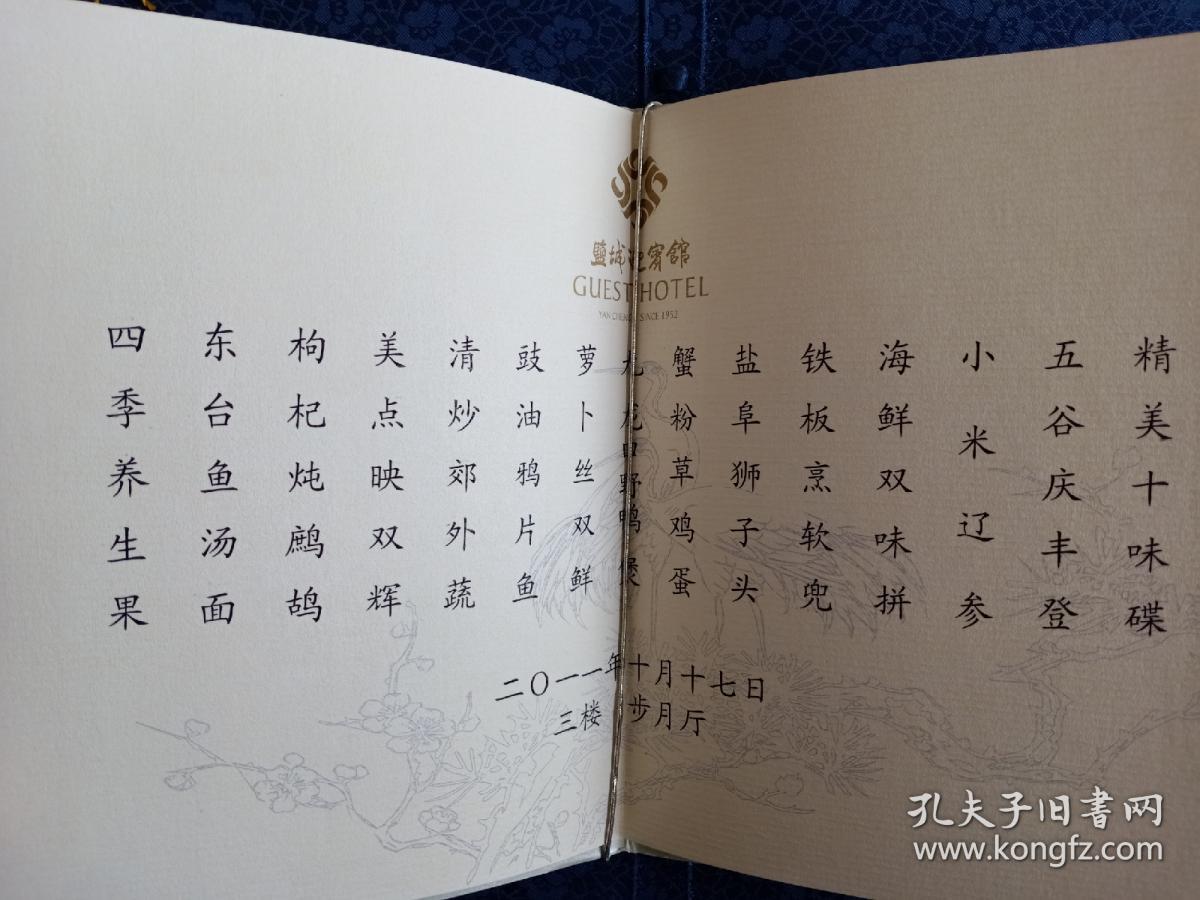 盐城迎宾館
GUEST HOTEL
YAN CHENG SINCE 1952
精美十味碟
五谷庆丰登
小米辽参
海鲜双味拼
铁板烹软兜
盐阜狮子头
蟹粉草鸡蛋
九龙口野鸭煲
萝卜丝双鲜
豉油鸦片鱼
清炒郊外蔬
美点映双辉
枸杞炖鹧鸪
东台鱼汤面
四季养生果
二〇一一年十月十七日
三楼 步月厅
孔夫子旧書网
www.kongfz.com